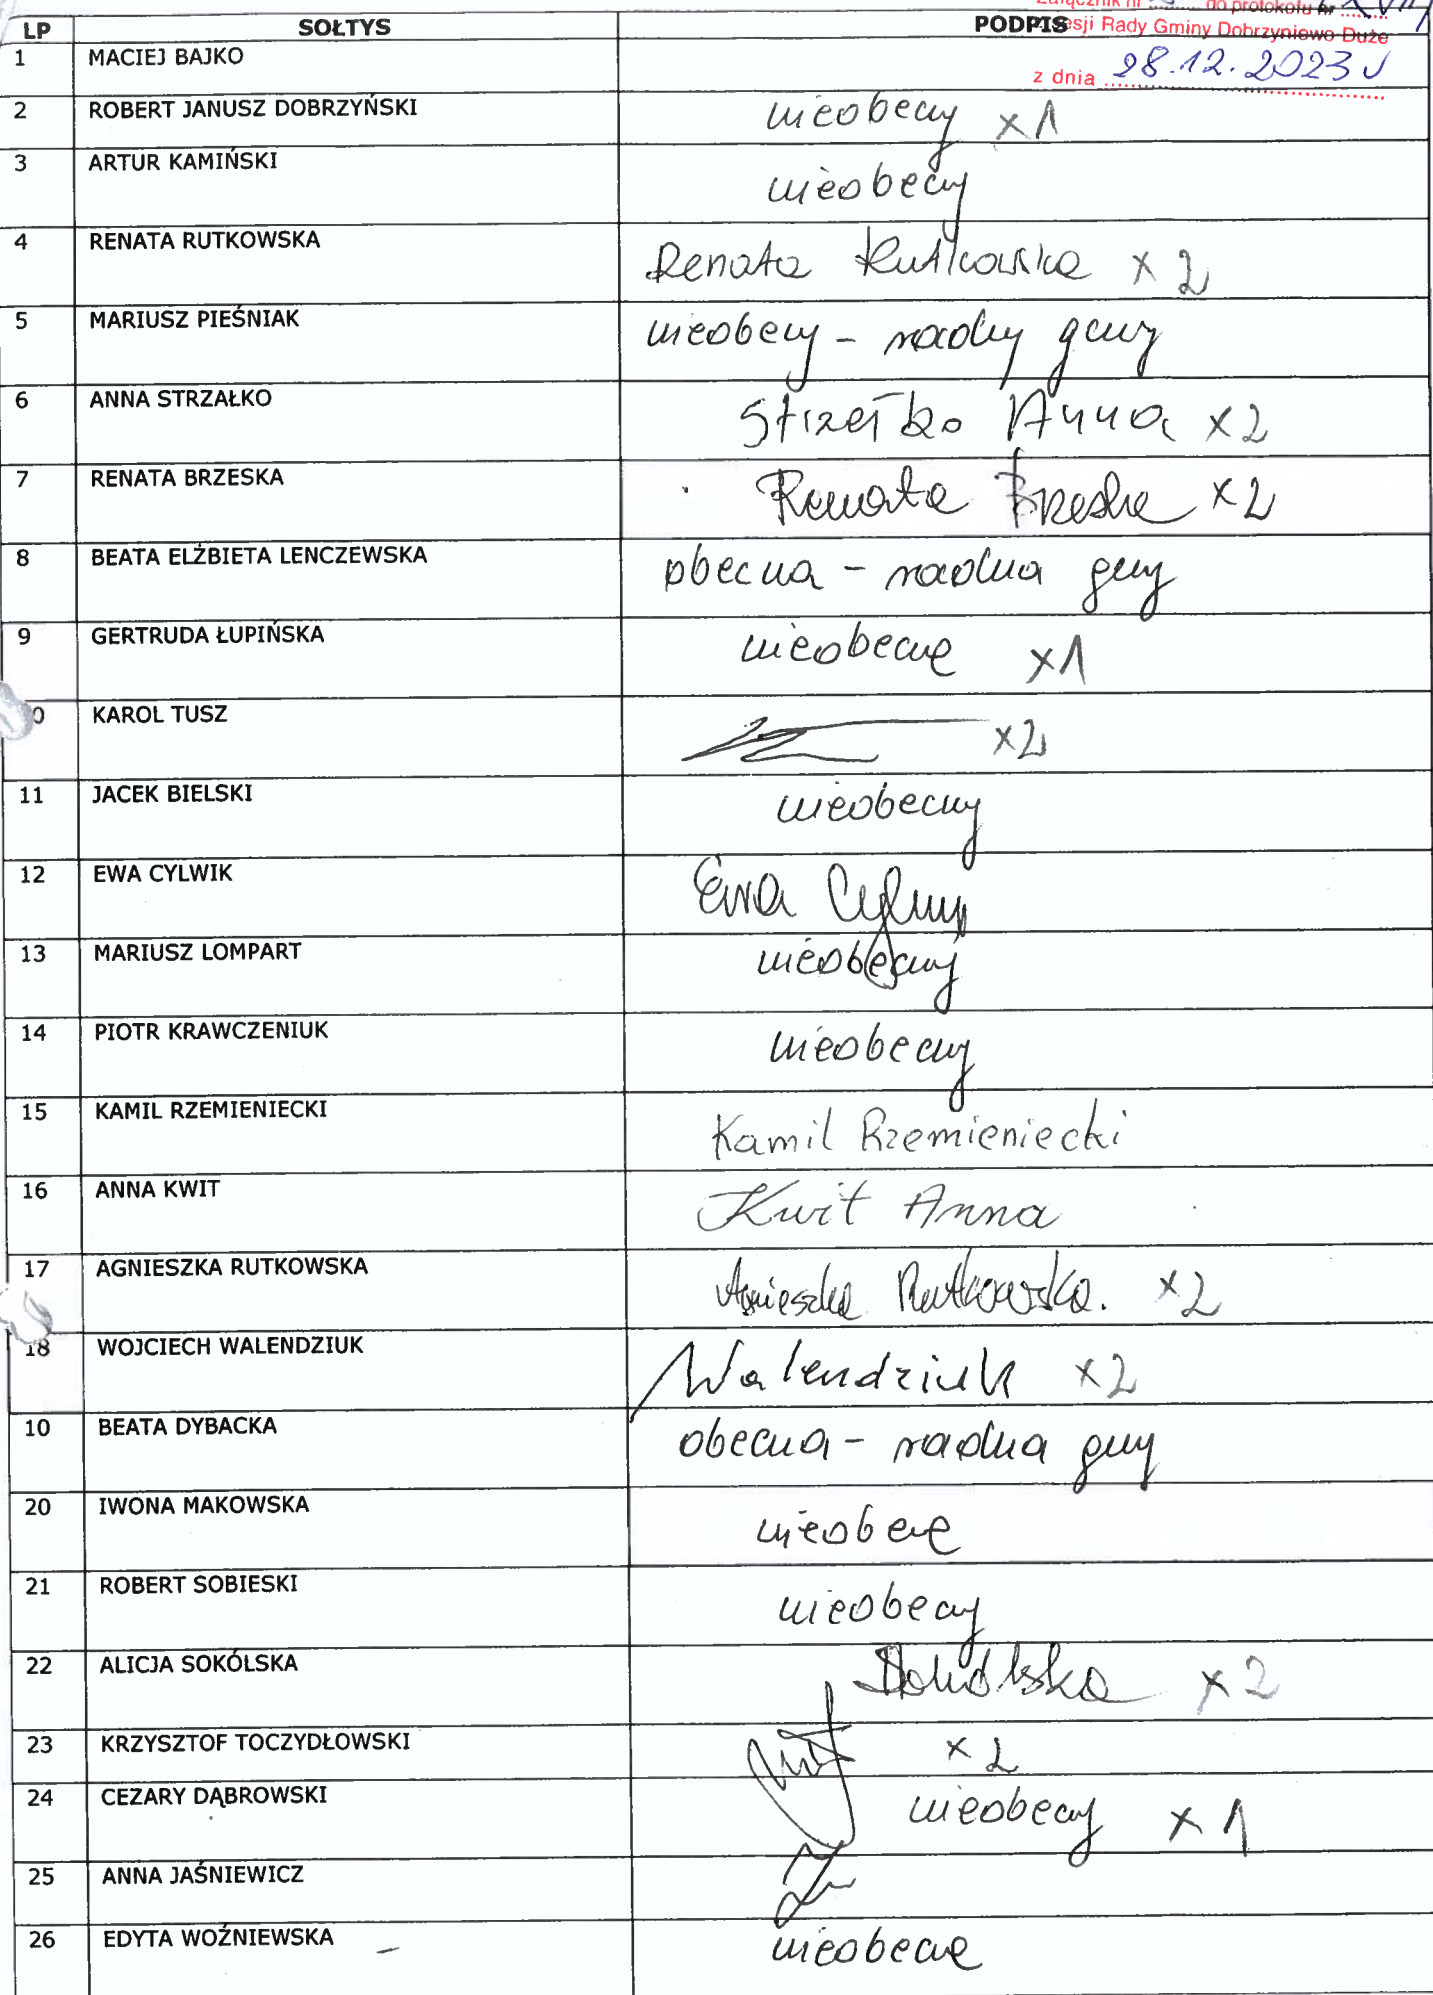 Załącznik nr do protokołu nr
LP SOŁTYS PODPIS
sesji Rady Gminy Dobrzyniewo Duże
1 MACIEJ BAJKO
z dnia 28.12.2023 r
2 ROBERT JANUSZ DOBRZYŃSKI nieobecny x1
3 ARTUR KAMIŃSKI nieobecny
4 RENATA RUTKOWSKA Renata Rutkowska x2
5 MARIUSZ PIEŚNIAK nieobecny - radny gminy
6 ANNA STRZAŁKO Strzałko Anna x2
7 RENATA BRZESKA Renata Brzeska x2
8 BEATA ELŻBIETA LENCZEWSKA obecna - radna gminy
9 GERTRUDA ŁUPIŃSKA nieobecna x1
0 KAROL TUSZ x2
11 JACEK BIELSKI nieobecny
12 EWA CYLWIK Ewa Cylwik
13 MARIUSZ LOMPART nieobecny
14 PIOTR KRAWCZENIUK nieobecny
15 KAMIL RZEMIENIECKI Kamil Rzemieniecki
16 ANNA KWIT Kwit Anna
17 AGNIESZKA RUTKOWSKA Agnieszka Rutkowska. x2
18 WOJCIECH WALENDZIUK Walendziuk x2
10 BEATA DYBACKA obecna - radna gminy
20 IWONA MAKOWSKA nieobecna
21 ROBERT SOBIESKI nieobecny
22 ALICJA SOKÓLSKA Sokólska x2
23 KRZYSZTOF TOCZYDŁOWSKI x2
24 CEZARY DĄBROWSKI nieobecny x1
25 ANNA JAŚNIEWICZ
26 EDYTA WOŹNIEWSKA nieobecna